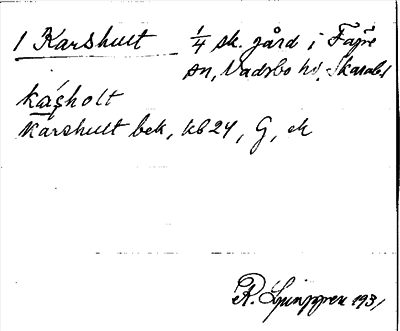 1 Karshult 1/4 sk. gård i Fägre
sn, Vadsbo hd, Skarabl
káşholt
Karshult bek, kb 24, G, ek
R. Ljunggren 1931